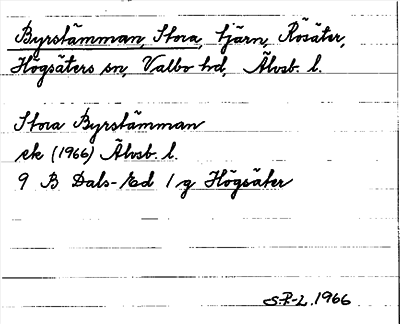 Byrstämman, Stora, tjärn, Rösäter,
Högsäters sn, Valbo hd, Älvsb. l.
Stora Byrstämman
ek (1966) Älvsb. l.
9 B Dals-Ed 1 g Högsäter
S.P-L. 1966